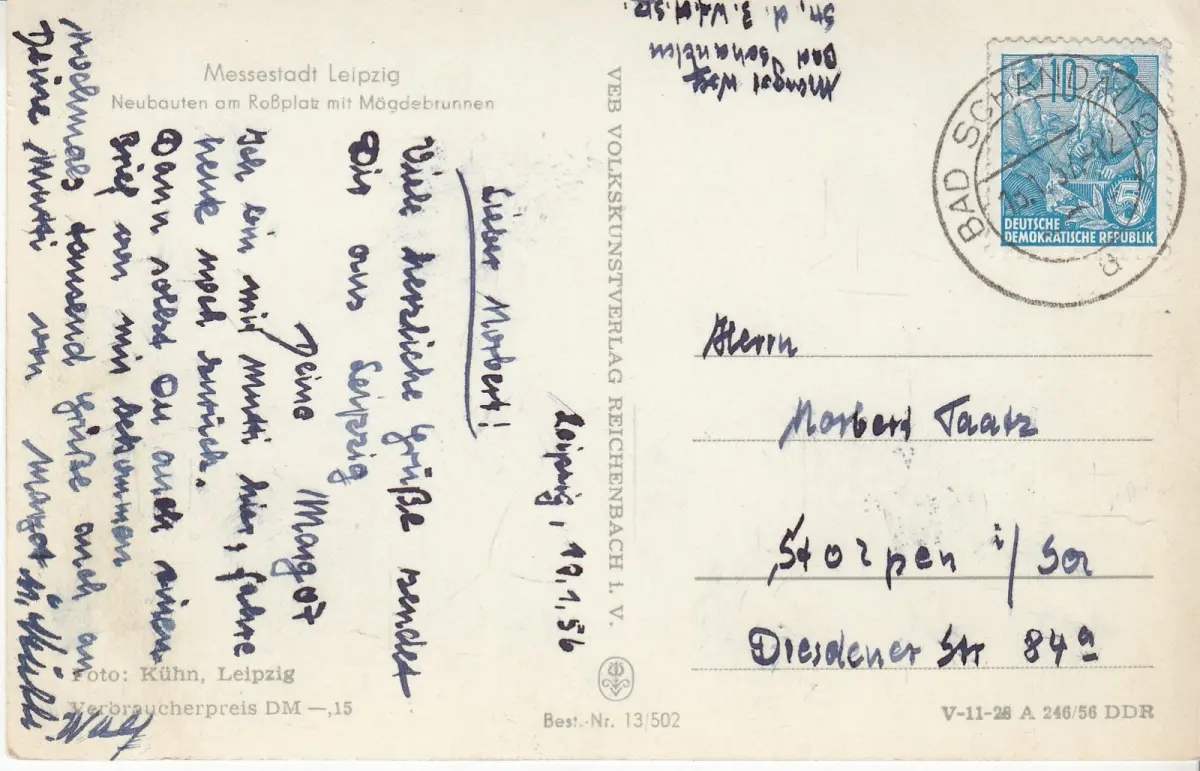 Messestadt Leipzig
Neubauten am Roßplatz mit Mägdebrunnen
Leipzig, 19.1.56
Lieber Norbert!
Viele herzliche Grüße sendet
Dir aus Leipzig
Deine Margot
Ich bin mit Mutti hier, fahre
heute noch zurück.
Dann sollst Du auch einen
Brief von mir bekommen
Nochmals tausend Grüße auch an
Deine Mutti von Margot
Foto: Kühn, Leipzig
Verbraucherpreis DM —,15
VEB VOLKSKUNSTVERLAG REICHENBACH i. V.
Best.-Nr. 13/502
Margot
Bad Schandau
Str. d.
10
5
DEUTSCHE
DEMOKRATISCHE REPUBLIK
BAD SCHANDAU
a
Herrn
Norbert Taatz
Stolpen i/Sa
Dresdener Str 84a
V-11-28 A 246/56 DDR